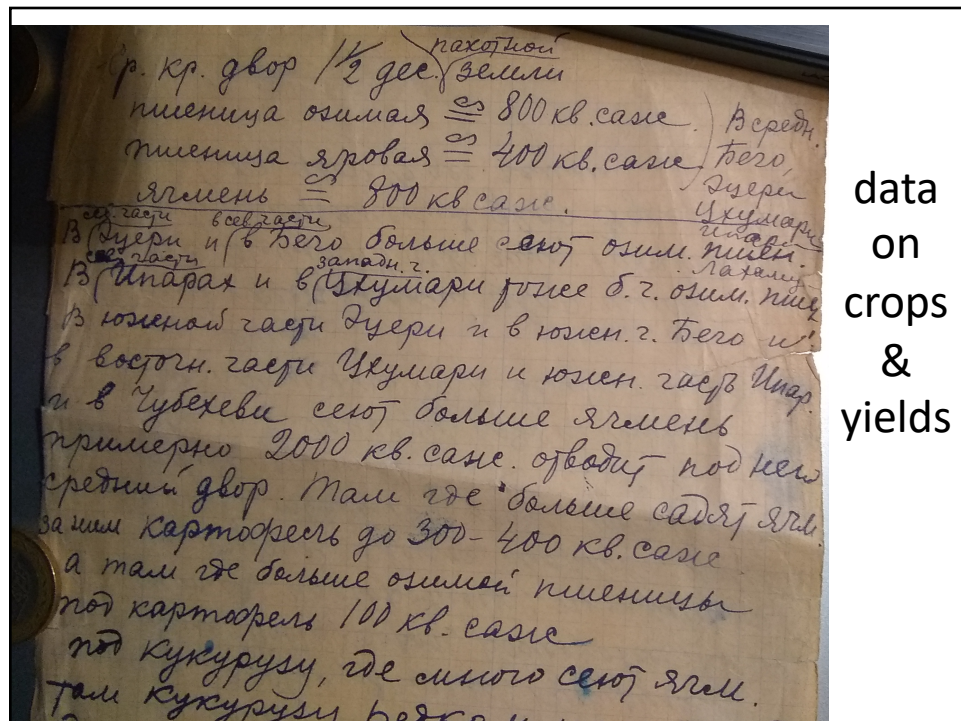 ср. кр. двор 1 1/2 дес. (пахотной земли
пшеница озимая ≅ 800 кв. саж.
пшеница яровая ≅ 400 кв. саж.
ячмень ≅ 800 кв саж.
В средн.
Бечо,
Эцери
Цхумари
Ипари
Лахаму
сев. части в сев. части
В (Эцери и (в Бечо больше сеют озим. пшен.
сев части западн. ч.
В (Ипарах и в (Цхумари тоже б. ч. озим. пшен
В южной части Эцери и в южн. ч. Бечо и
в восточн. части Цхумари и южн. часть Ипар.
и в Чубехеви сеют больше ячмень
примерно 2000 кв. саж. отводит под него
средний двор. Там где больше садят ячм.
за ним картофель до 300-400 кв. саж
а там где больше озимой пшеницы
под картофель 100 кв. саж
под кукурузу, где много сеют ячм.
там кукурузу редко
data
on
crops
&
yields